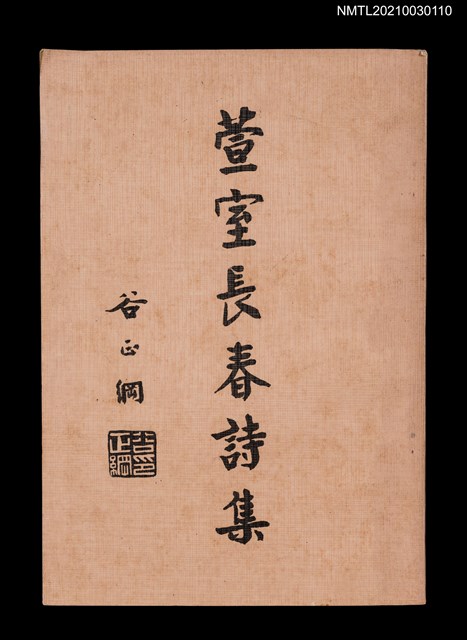 NMTL20210030110
萱室長春詩集
谷正綱
谷正綱印